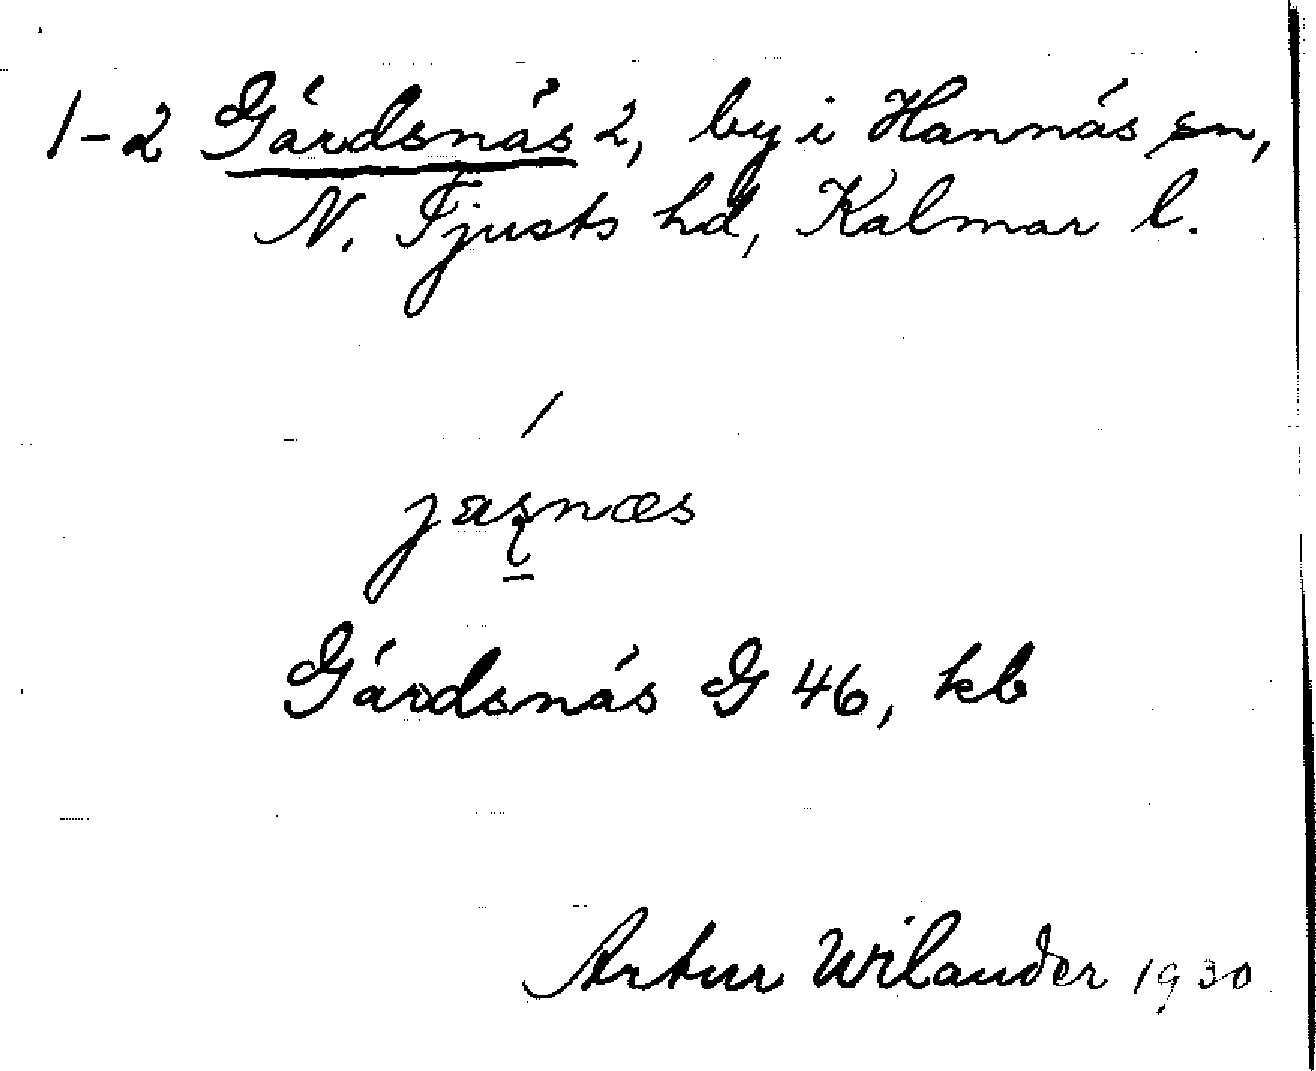 1-2 Gärdsnäs 2, by i Hannäs sn,
N. Tjusts hd, Kalmar l.
Gärdsnäs G 46, kb
Artur Wilander 1930